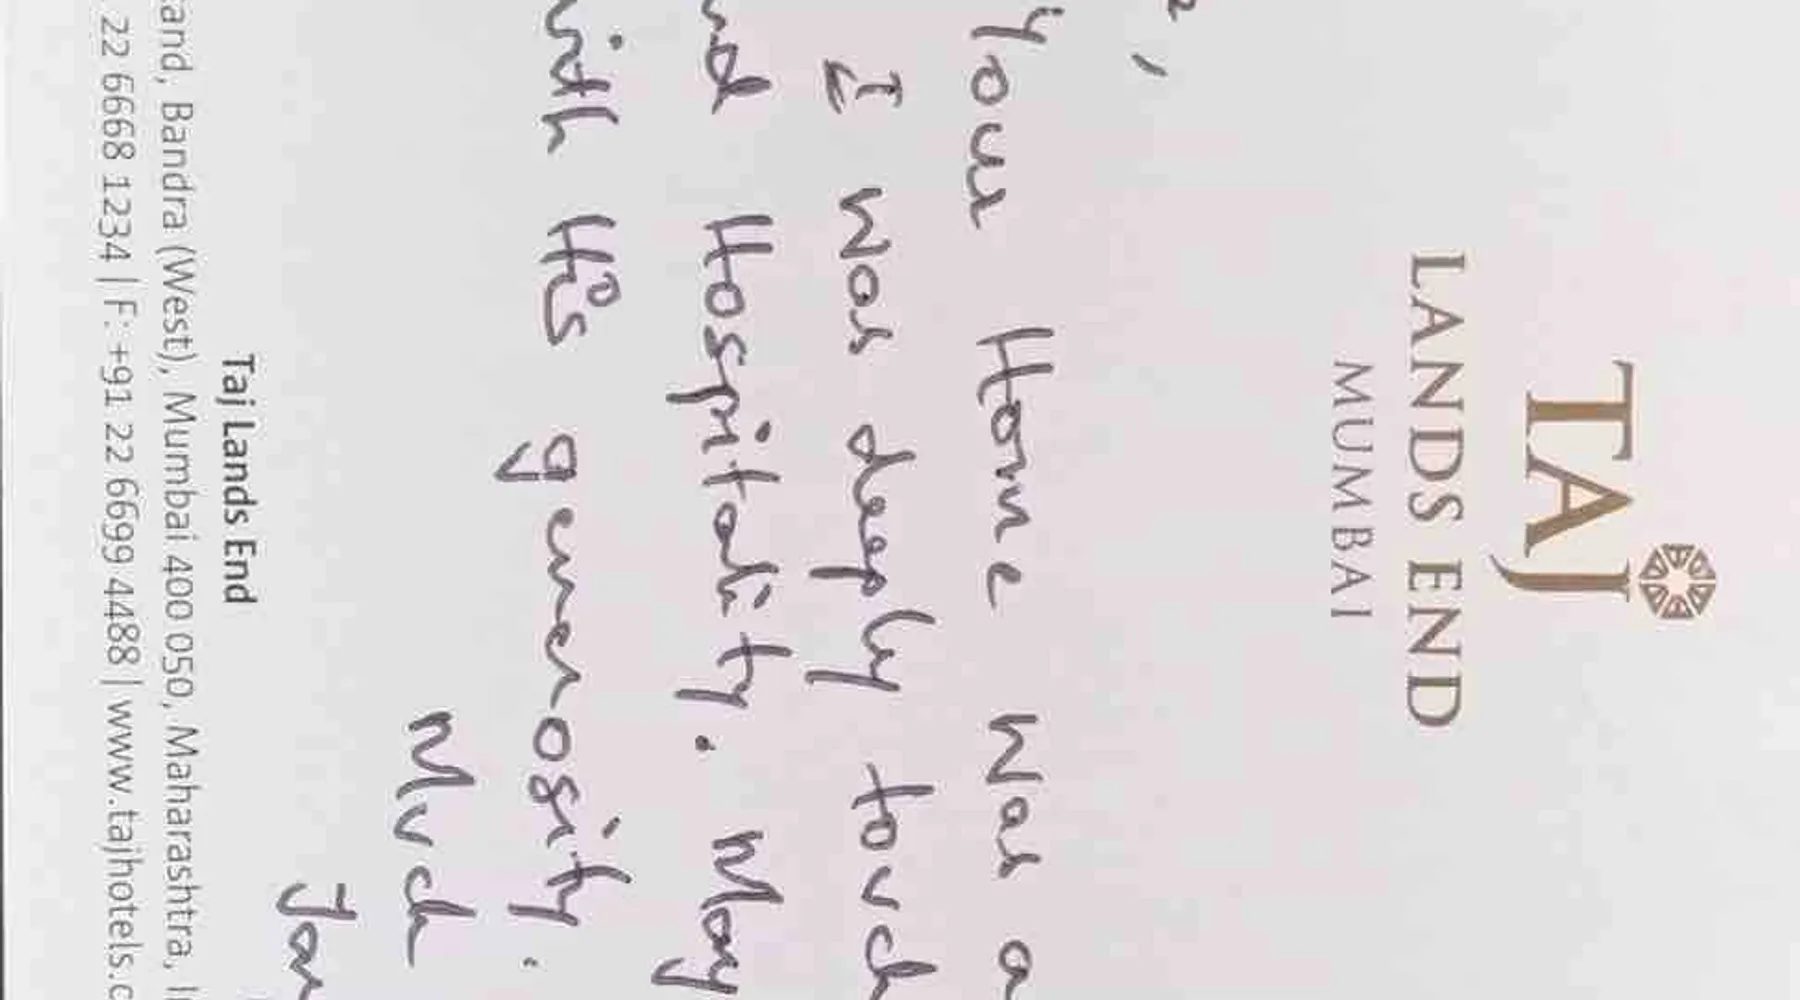 TAJ
LANDS END
MUMBAI
,
your Home was a
I was deeply touch
nd Hospitality. May
with His generosity.
Much
Taj Lands End
and, Bandra (West), Mumbai 400 050, Maharashtra, I
22 6668 1234 | F: +91 22 6699 4488 | www.tajhotels.c